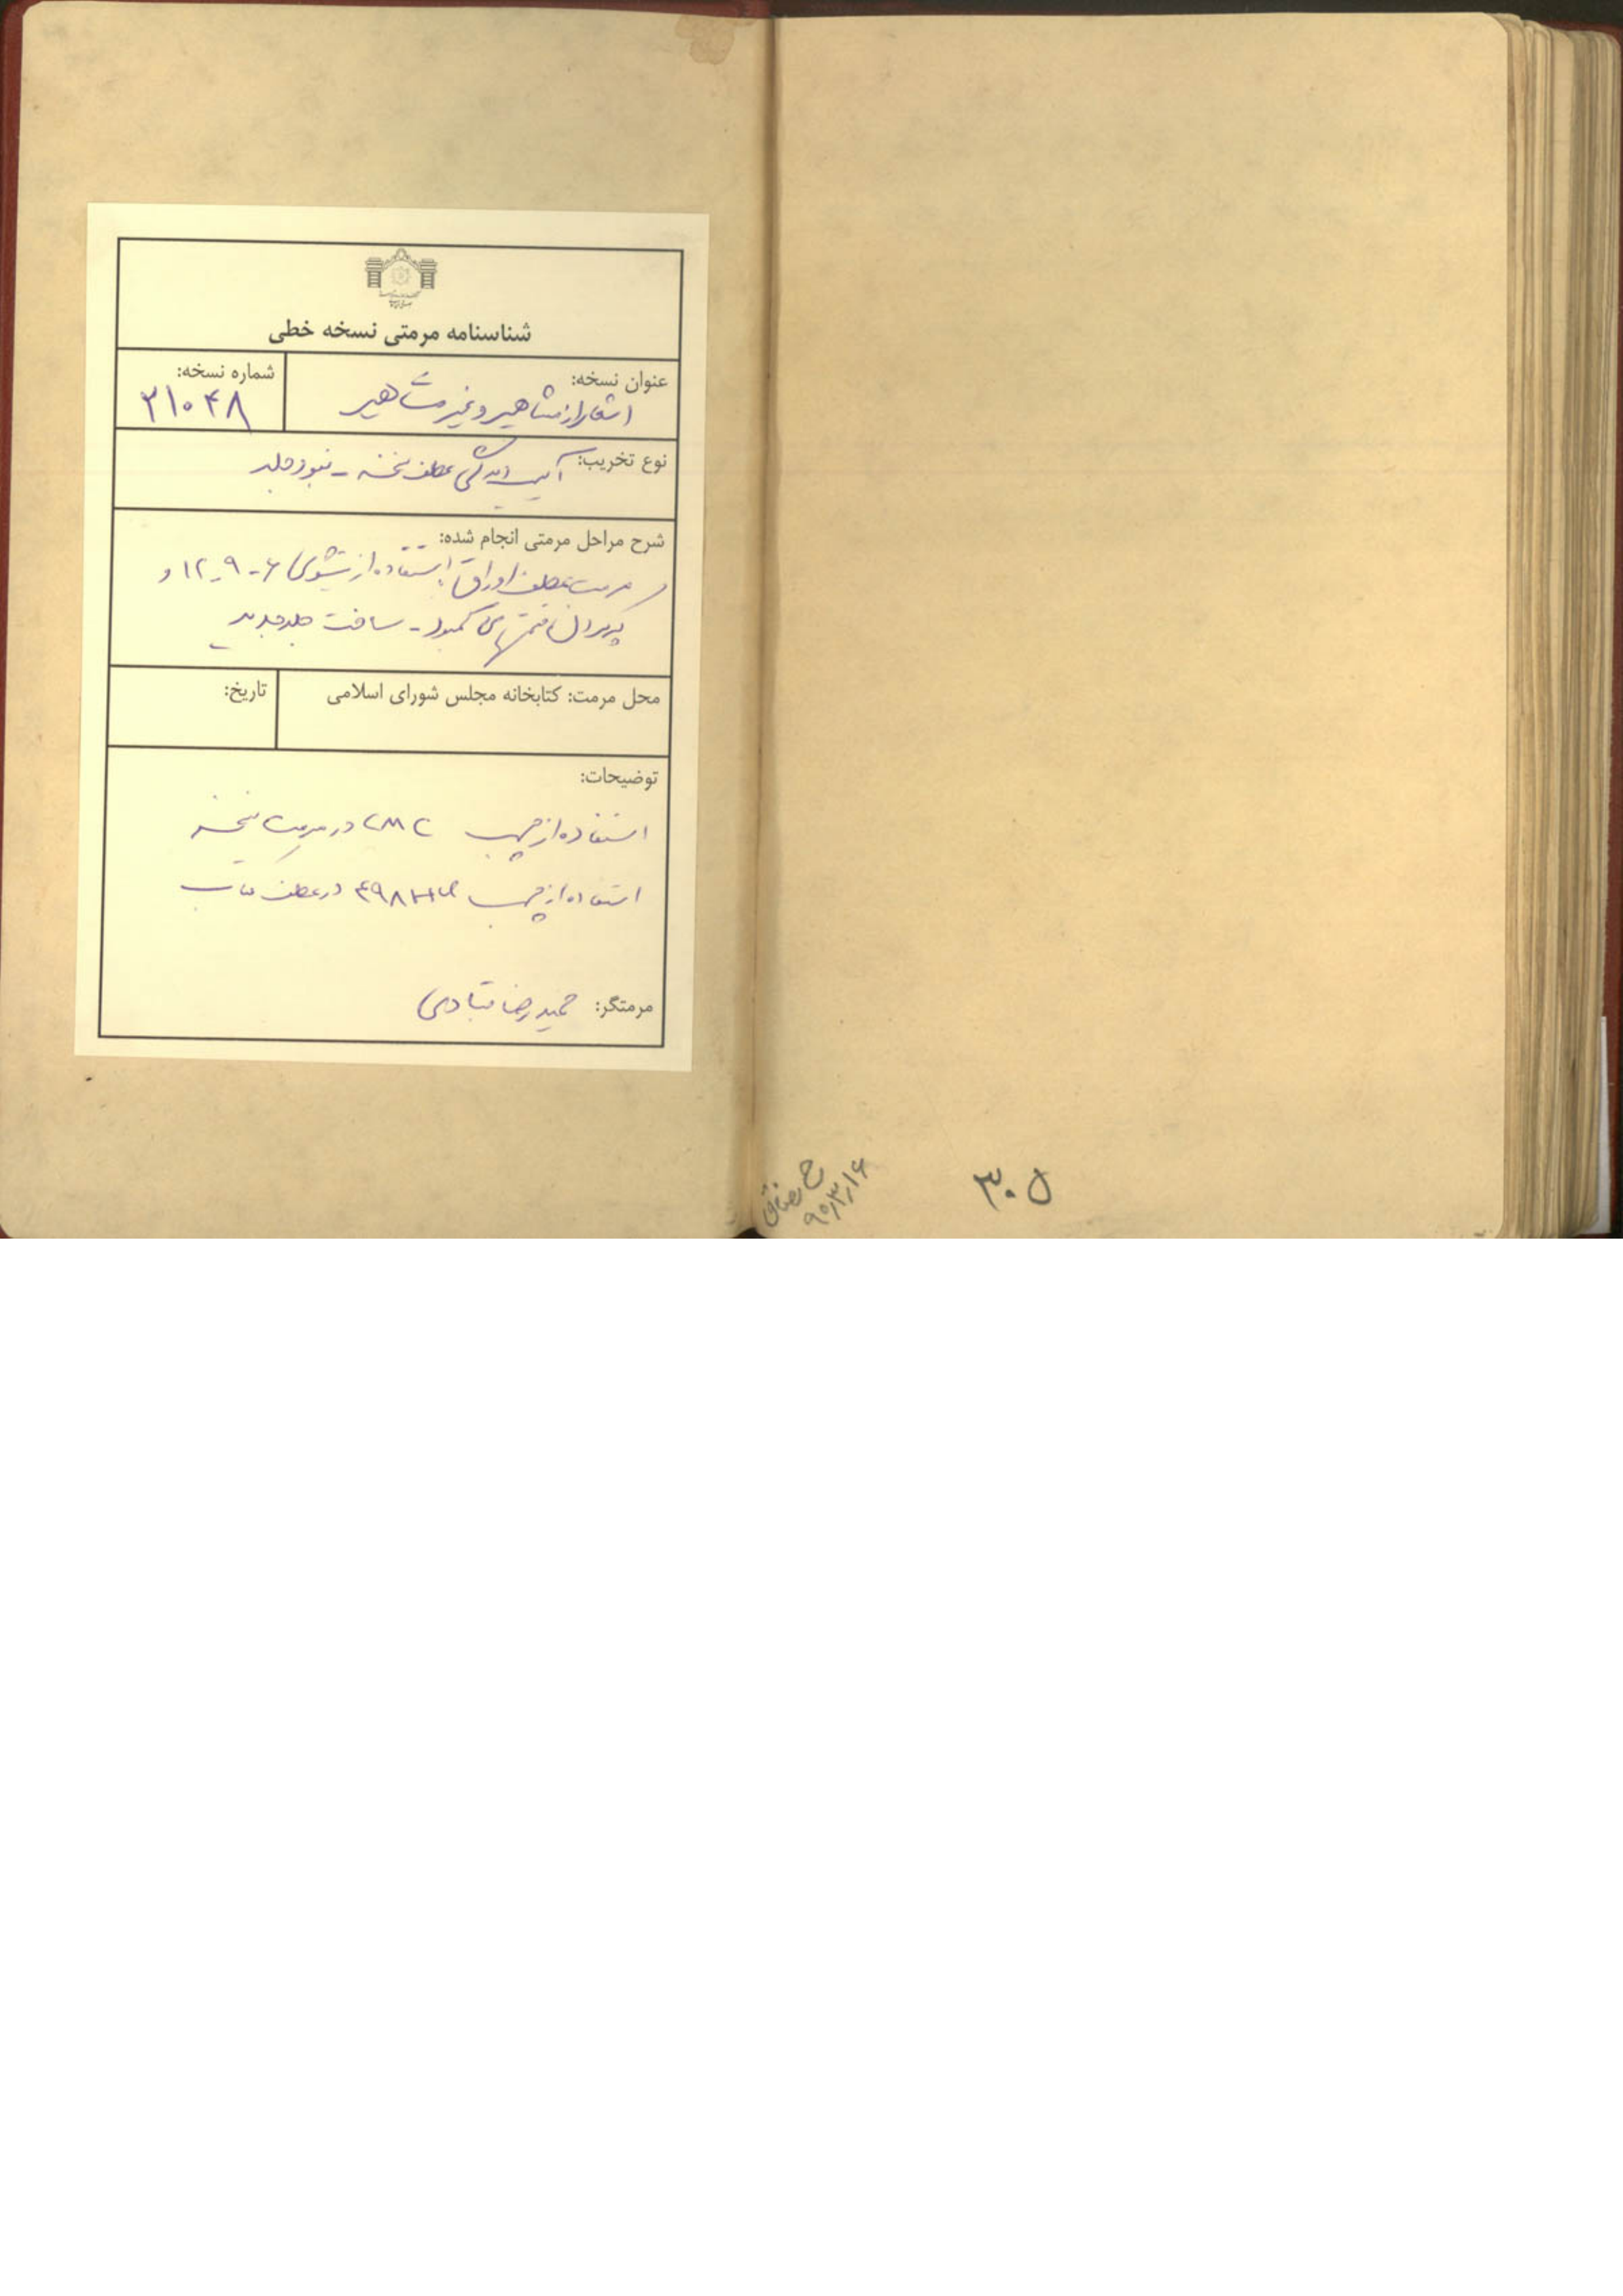 شناسنامه مرمتی نسخه خطی
عنوان نسخه: اشعار از مشاهیر و غیر مشاهیر
شماره نسخه: ۲۱۰۴۸
نوع تخریب: آسیب دیدگی عطف نسخه - نبود جلد
شرح مراحل مرمتی انجام شده:
مرمت عطف اوراق با استفاده از تیشوی ۶-۹-۱۲ و
پر کردن قسمتهای کمبود - ساخت جلد جدید
محل مرمت: کتابخانه مجلس شورای اسلامی
تاریخ:
توضیحات:
استفاده از چسب CMC در مرمت نسخه
استفاده از چسب ۴۹۸ در عطف کتاب
مرمتگر: حمیدرضا
۹۵/۳/۱۶
۳۰ل